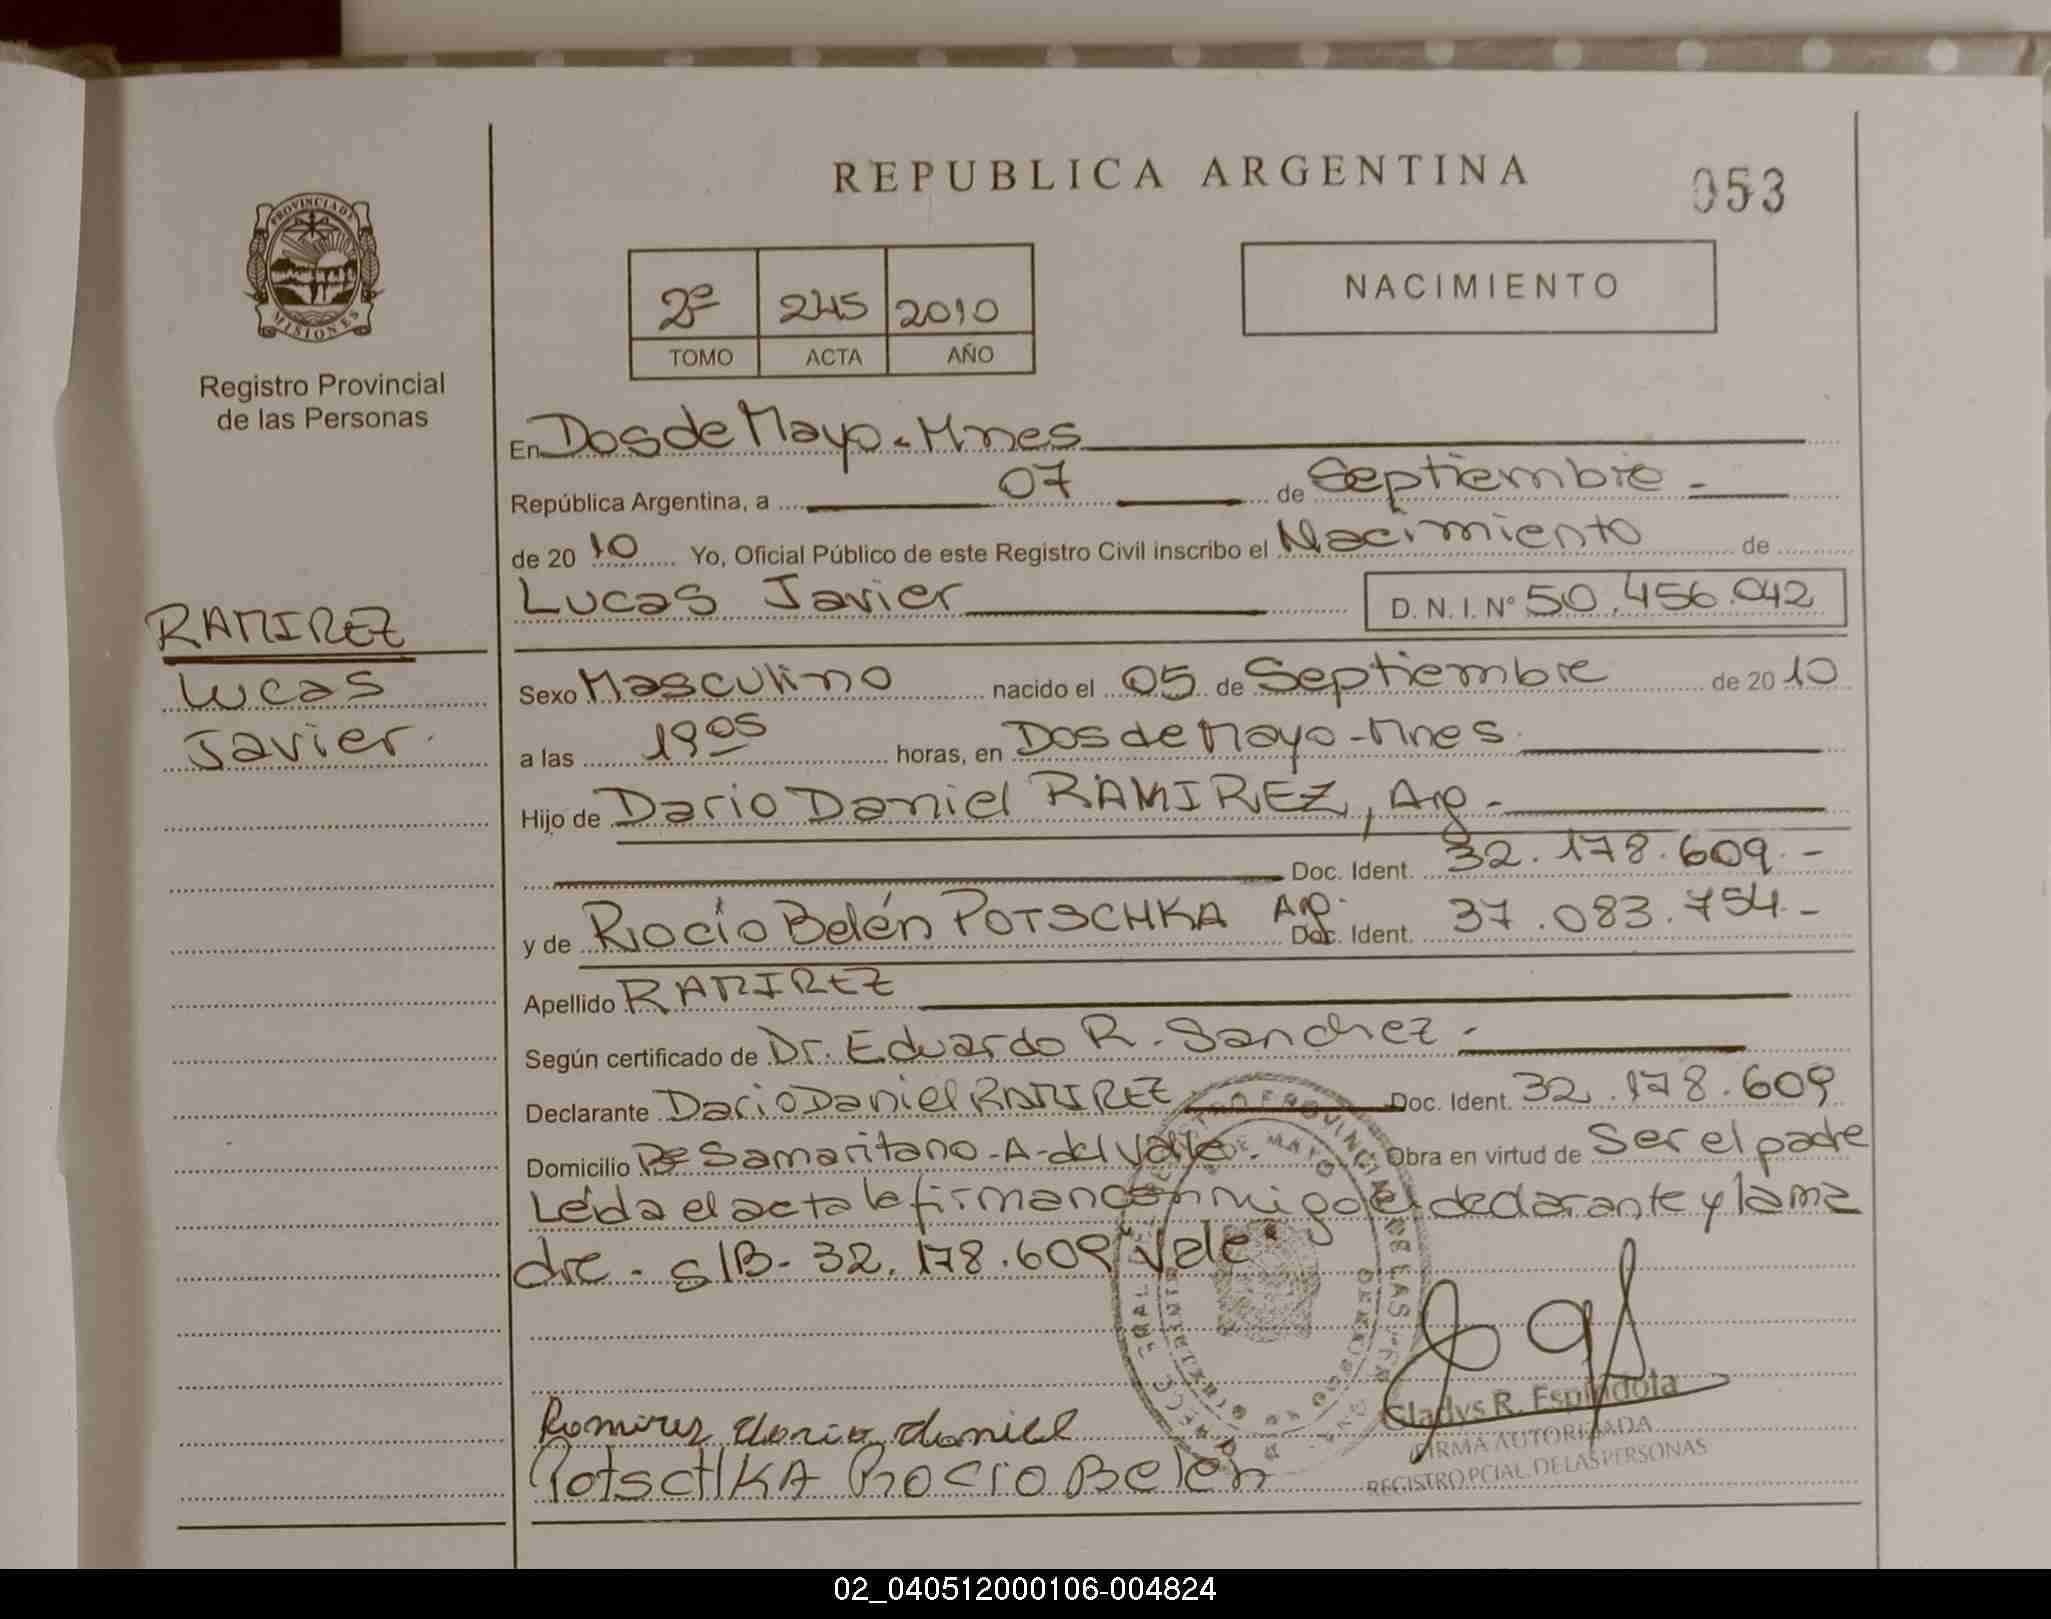 REPUBLICA ARGENTINA
053
PROVINCIA DE MISIONES
Registro Provincial
de las Personas
2º 245 2010
TOMO ACTA AÑO
NACIMIENTO
En Dos de Mayo - Mnes
República Argentina, a 07 de Septiembre -
de 20 10 Yo, Oficial Público de este Registro Civil inscribo el Nacimiento de
Lucas Javier D. N. I. Nº 50.456.042
RAMIREZ
Lucas
Javier.
Sexo Masculino nacido el 05 de Septiembre de 20 10
a las 19 05 horas, en Dos de Mayo - Mnes
Hijo de Dario Daniel RAMIREZ, Arg -
Doc. Ident. 32.178.609.-
y de Rocío Belén POTSCHKA Arg. Doc. Ident. 37.083.754.-
Apellido RAMIREZ
Según certificado de Dr. Eduardo R. Sanchez -
Declarante Dario Daniel RAMIREZ Doc. Ident. 32.178.609
Domicilio Bº Samaritano - A - del Valle. Obra en virtud de Ser el padre
Leída el acta la firman conmigo el declarante y la ma
dre - s/B - 32.178.609 "Vale"
Ramirez dario daniel
Potschka Rocio Belén
Gladys R. Espindola
FIRMA AUTORIZADA
REGISTRO PCIAL. DE LAS PERSONAS
02_040512000106-004824